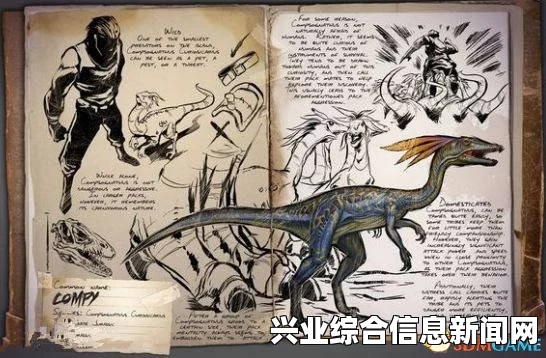 Wild
One of the smallest
predators on the island,
Compsognathus Curiosicarius
can be seen as a pet, a
pest, or a threat.
While alone,
Compsognathus is not
dangerous or aggressive.
In larger packs,
however, it remembers
its carnivorous nature.
Common name:
Compy
Compsognathus Curiosicarius
Late Jurassic
After a group of
Compsognathus
For some reason,
Compsognathus is not
naturally afraid of
humans. Rather, it seems
to be quite curious of
humans and their
instruments of survival.
They tend to be drawn
toward humans out of this
curiosity, and then call
their pack mates to help
explore their discovery.
This usually leads to the
aforementioned pack
aggression.
Domesticated
Compsognathus can be
tamed quite easily, so
some tribes keep them
for little more than
However, they gain
increasingly significant
attack power and speed
when in close proximity
to other Compsognathus,
as their pack aggression
takes over their behavior.
Additionally, their
distress call carries quite
far, rapidly alerting the
tribe and its pets to
danger more efficiently.
3DMGAME
兴业综合信息新闻网